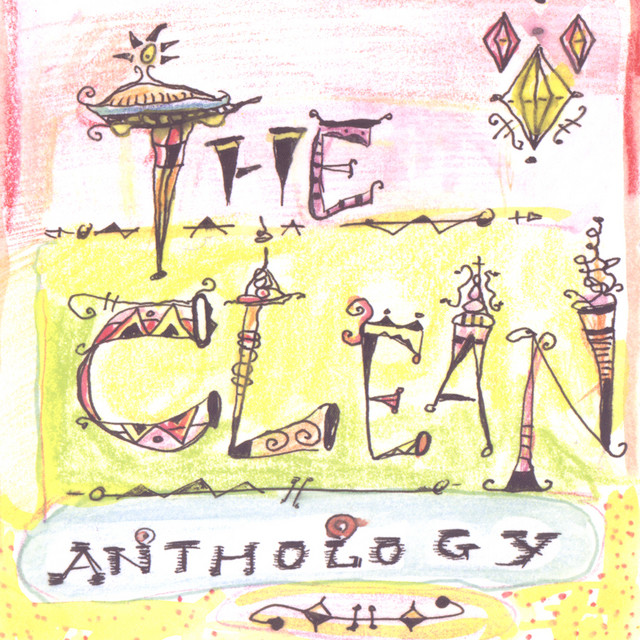 THE
CLEAN
ANTHOLOGY